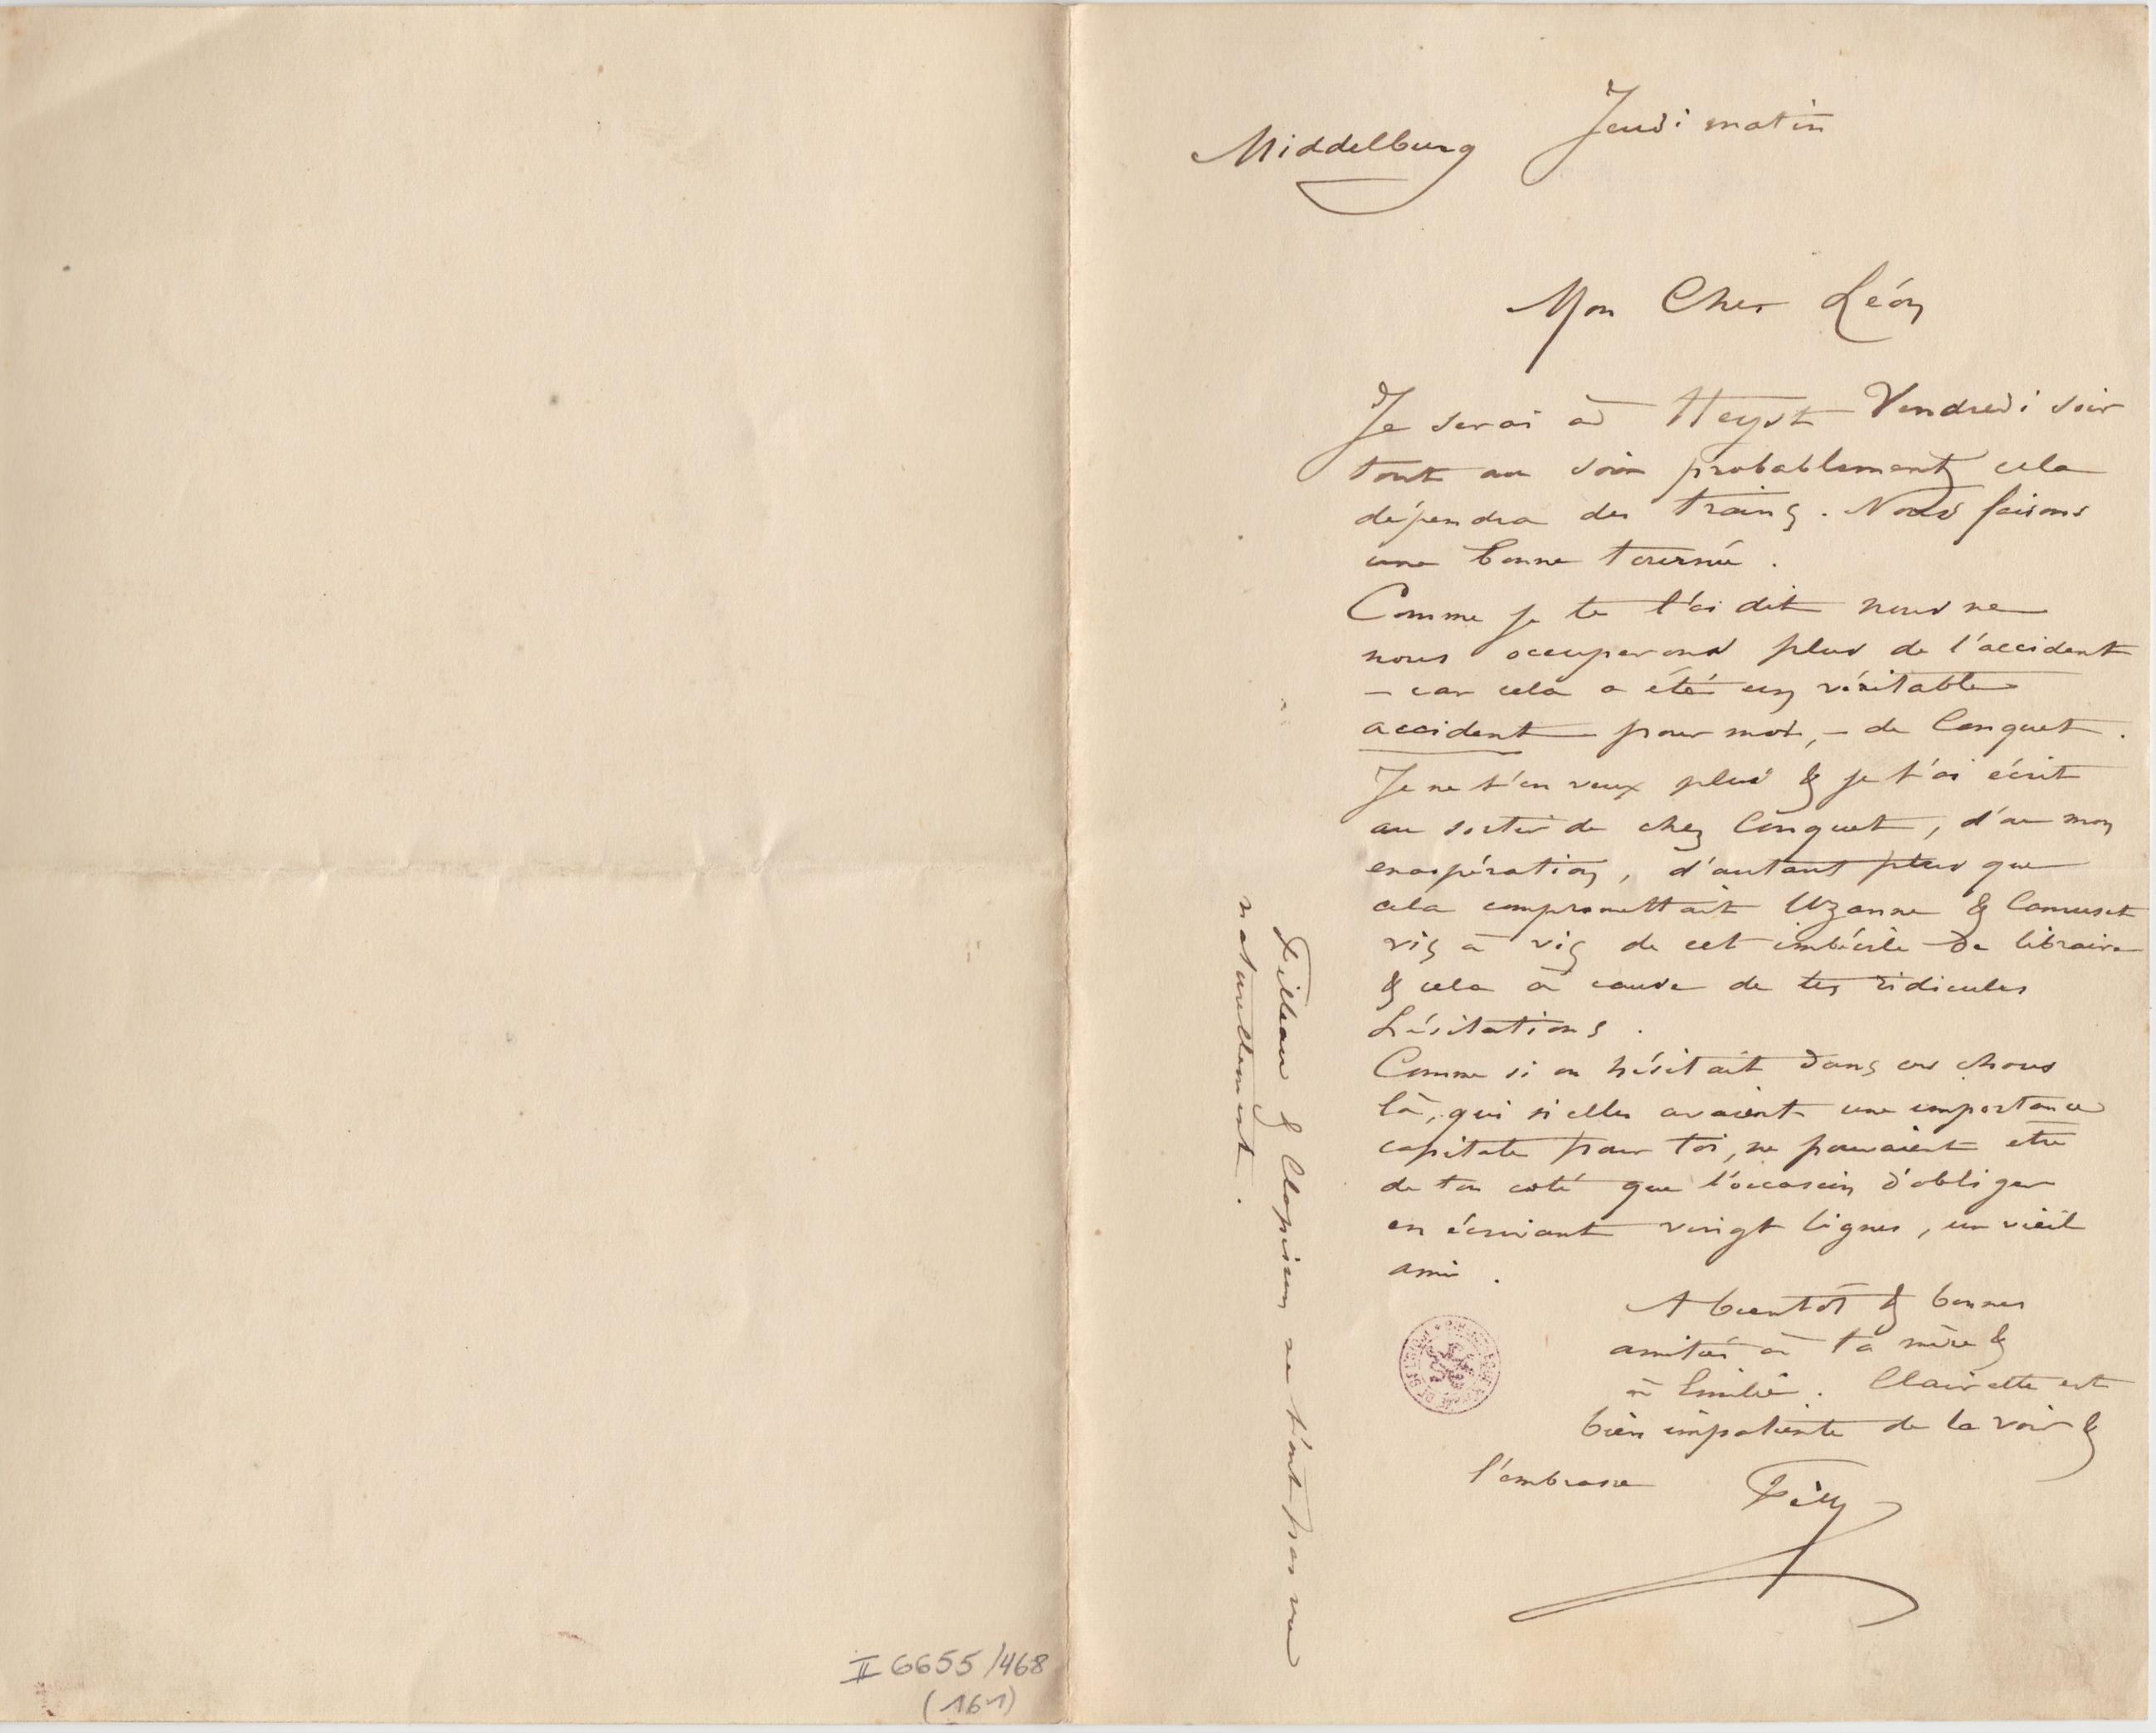 Middelburg Jeudi matin
Mon Cher Léon
Je serai à Heyst Vendredi soir
tout au soir probablement cela
dépendra des trains. Nous faisons
une bonne tournée.
Comme je te l'ai dit nous ne
nous occuperons plus de l'accident
– car cela a été un véritable
accident pour moi, – de Conquet.
Je ne t'en veux plus & je t'ai écrit
au sortir de chez Conquet, d'où mon
exaspération, d'autant plus que
cela compromettait Uzanne & Camuset
vis à vis de cet imbécile de libraire
& cela à cause de tes ridicules
hésitations.
Comme si on hésitait dans ces choses
là, qui si elles avaient une importance
capitale pour toi, ne pouvaient etre
de ton coté que l'occasion d'obliger
en écrivant vingt lignes, un vieil
ami.
A bientôt & bonnes
amitiés à ta mère &
à Emilie. Clairette est
bien impatiente de la voir &
l'embrasse Fély
Filleau & Clapisson ne t'ont pas vu
naturellement.
II 6655/468
(161)